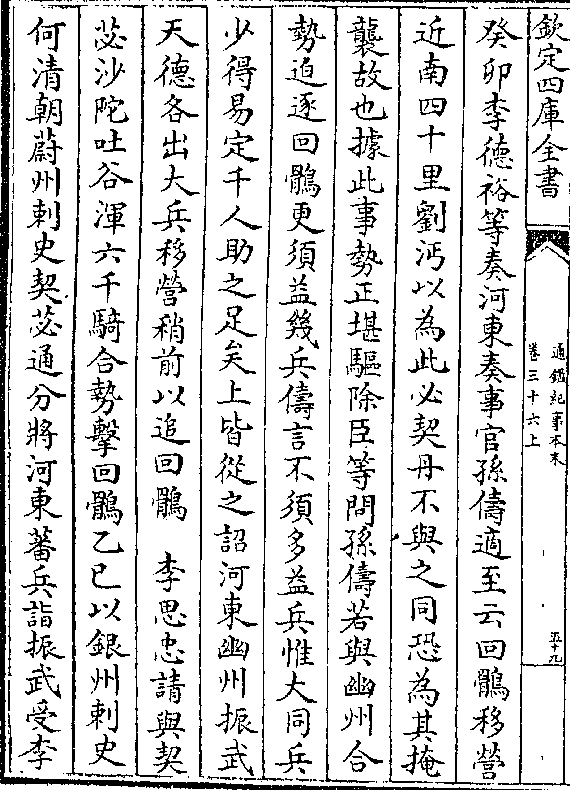 欽定四庫全書
通鑑紀事本末
卷三十六上
五十九
癸卯李德裕等奏河東奏事官孫儔適至云回鶻移營
近南四十里劉沔以為此必契丹不與之同恐為其掩
襲故也據此事勢正堪驅除臣等問孫儔若與幽州合
勢迫逐回鶻更須益幾兵儔言不須多益兵惟大同兵
少得易定千人助之足矣上皆從之詔河東幽州振武
天德各出大兵移營稍前以追回鶻　李思忠請與契
苾沙陀吐谷渾六千騎合勢擊回鶻乙巳以銀州刺史
何清朝蔚州刺史契苾通分將河東蕃兵詣振武受李